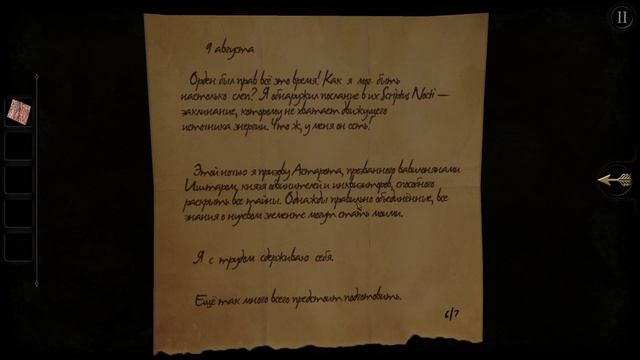 9 августа
Орден был прав всё это время! Как я мог быть
настолько слеп? Я обнаружил послание в их Scriptus Nocti —
заклинание, которому не хватает движущего
источника энергии. Что ж, у меня он есть!
Этой ночью я призову Астарота, прозванного вавилонянами
Иштаром, князя обвинителей и инквизиторов, способного
раскрыть все тайны. Однажды правильно объединённые, все
знания о нулевом элементе могут стать моими.
Я с трудом сдерживаю себя.
Ещё так много всего предстоит подготовить.
6/7